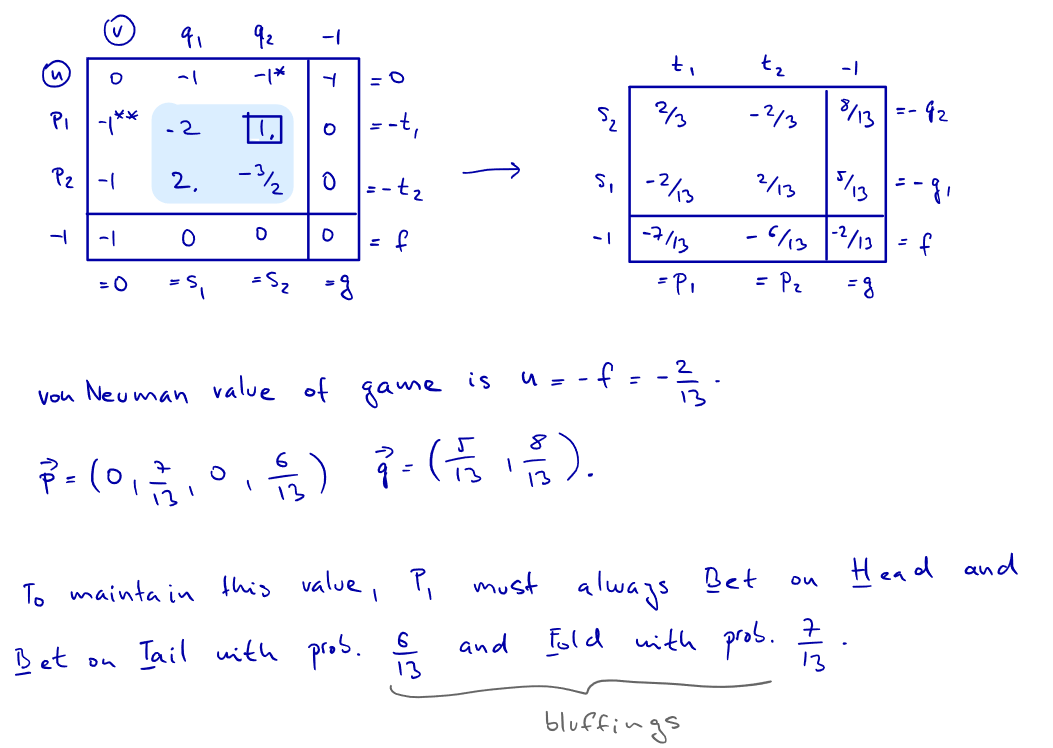 ⓥ q₁ q₂ -1
ⓤ 0 -1 -1* -1 = 0
P₁ -1** -2 1. 0 = -t₁
P₂ -1 2. -3/2 0 = -t₂
-1 -1 0 0 0 = f
=0 =S₁ =S₂ =g
t₁ t₂ -1
S₂ 2/3 -2/3 8/13 = -q₂
S₁ -2/13 2/13 5/13 = -q₁
-1 -7/13 -6/13 -2/13 = f
=P₁ =P₂ =g
von Neuman value of game is u = -f = -2/13.
p⃗ = (0, 7/13, 0, 6/13) q⃗ = (5/13, 8/13).
To maintain this value, P₁ must always Bet on Head and
Bet on Tail with prob. 6/13 and Fold with prob. 7/13.
bluffings